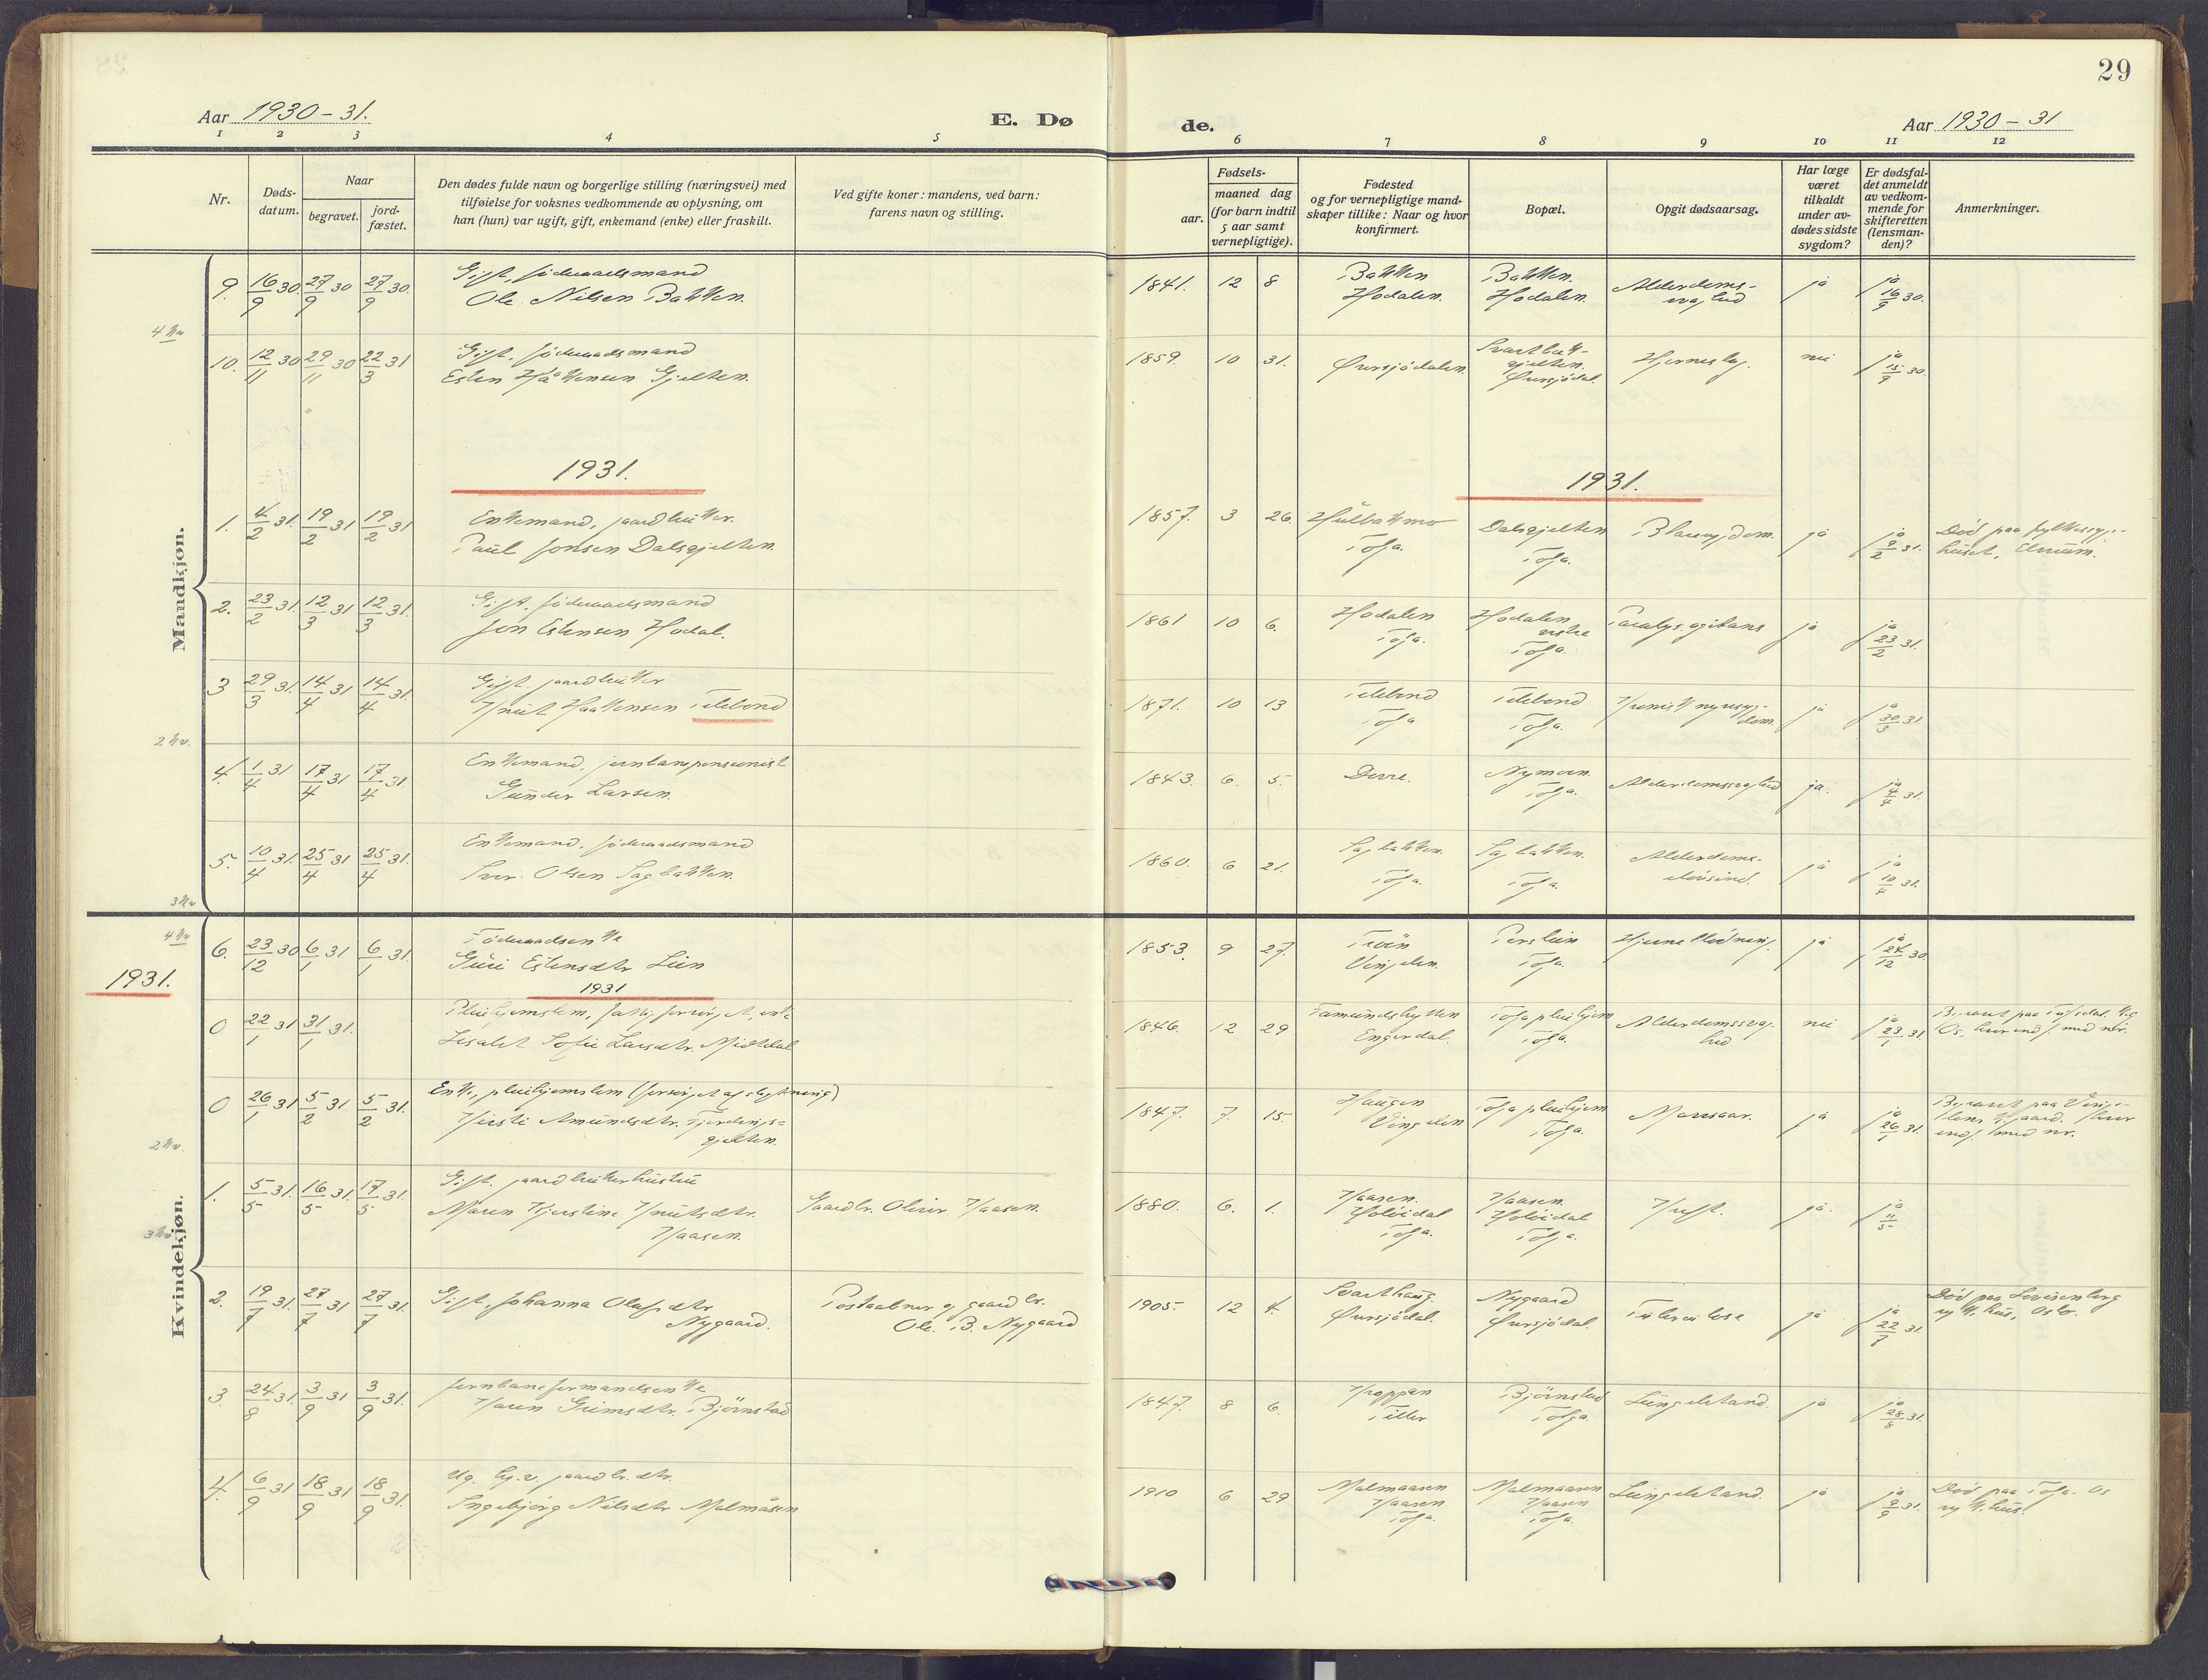 29
Aar 1930-31.
E. Dø
de.
Aar 1930-31
1 2 3 4 5 6 7 8 9 10 11 12
Nr.
Døds-
datum.
Naar
begravet.
jord-
fæstet.
Den dødes fulde navn og borgerlige stilling (næringsvei) med
tilføielse for voksnes vedkommende av oplysning, om
han (hun) var ugift, gift, enkemand (enke) eller fraskilt.
Ved gifte koner: mandens, ved barn:
farens navn og stilling.
Fødsels-
aar.
maaned dag
(for barn indtil
5 aar samt
vernepligtige).
Fødested
og for vernepligtige mand-
skaper tillike: Naar og hvor
konfirmert.
Bopæl.
Opgit dødsaarsag.
Har læge
været
tilkaldt
under av-
dødes sidste
sygdom?
Er dødsfal-
det anmeldt
av vedkom-
mende for
skifteretten
(lensman-
den)?
Anmerkninger.
Mandkjøn.
9. 16/9 30 27/9 30 27/9 30. Gift, föderaadsmand
Ole Nilsen Bakken.
1841. 12 8 Bakken Hodalen. Bakken. Hodalen. Alderdoms-
svaghed ja ja 16/9 30.
10. 12/11 30 29/11 30 22/3 31 Gift, föderaadsmand
Esten Håkensen Gjelten.
1859. 10 31. Øversjödalen. gjelten. Øversjödal. Hjerneslag. nei ja 15/9 30.
1931.
1931.
1. 4/2 31. 19/2 31 19/2 31 Enkemand, gaardbruker.
Paul Jonsen Dalsgjelten.
1857. 3 26. Hulbakmo Tolga. Dalsgjelten Tolga. ja ja 9/2 31. Död paa fylkessyge-
huset, Elverum.
2. 23/2 31. 12/3 31 12/3 31. Gift, föderaadsmand
Jon Estensen Hodal.
1861 10 6. Hodalen Tolga. Hodalen Tolga. Paralys. agitans ja ja 23/2 31.
3 29/3 31. 14/4 31 14/4 31. Gift. gaardbruker
Knut Haakensen Telebond
1871. 10 13 Telebond Tolga Telebond Tolga. Kronisk nyresyg-
dom. ja ja 30/3 31.
4. 1/4 31 17/4 31 17/4 31 Enkemand, jernbanepensionist
Gunder Larsen.
1843. 6. 5. Dovre. Nymoen. Tolga. Alderdomssvaghed ja. ja 4/4 31.
5. 10/4 31. 25/4 31 25/4 31. Enkemand, föderaadsmand
Iver Olsen Sagbakken.
1860. 6 21. Sagbakken. Tolga. Sagbakken. Tolga. Alderdoms- ja ja 10/4 31.
Kvindekjøn.
6. 23/12 30 6/1 31 6/1 31. Föderaadsenke
Guri Estensdtr Lien
1853. 9 27. Troön Vingelen. Perslien Tolga. Hjerneblödning. ja ja 24/12 30.
1931.
1931
0 22/1 31 31/1 31. Pleiehjemslem, fattigforsörget, enke
Lisabet Sofie Larsdtr. Midtdal
1846. 12 29 Fæmundshytten Engerdal. Tolga pleiehjem Tolga. Alderdomssvag-
hed nei ja 23/1 31.
0 26/1 31 5/2 31 5/2 31. Enke, pleiehjemslem (forsörget af slegtning)
Kirsti Amundsdtr. Fjerdings-
gjelten.
1847. 7. 15. Haugen Vingelen Tolga pleiehjem Tolga. Marasmus ja ja 26/1 31.
1. 5/5 31. 16/5 31. 17/5 31. Gift, gaardbrukerhustru
Maren Kjerstine Knutsdtr.
Kaasen.
Gaardbr. Oliver Kaasen.
1880. 6. 1. Kaasen. Holöidal Tolga. Kaasen. Holöidal Tolga. Kreft. ja. ja 11/5
2. 19/7 31. 27/7 31 27/7 31. Gift, Johanna Olafsdtr
Nygaard.
Postaabner og gaardbr.
Ole B. Nygaard
1905. 12 4. Svarthaug Øversjödal. Nygaard Øversjödal. Tuberculose ja ja 22/7 31. Död paa Lovisenberg
sykehus, Oslo.
3 24/8 31. 3/9 31 3/9 31. Jernbaneformandsenke
Karen Grimsdtr. Björnstad
1847. 8 6. Kroppan Tiller Björnstad Tolga. Lungebetænd. ja ja 28/8 31.
4. 6/9 31 18/9 31 18/9 31. Ug. gaardbr. dtr.
Ingebjörg Nilsdtr Malmåsen
1910 6 29 Malmaasen Kaasen Tolga. Malmaasen Kaasen Tolga. Lungebetænd. ja ja 9/9 31. Död paa Tolga-Os
sykehus.